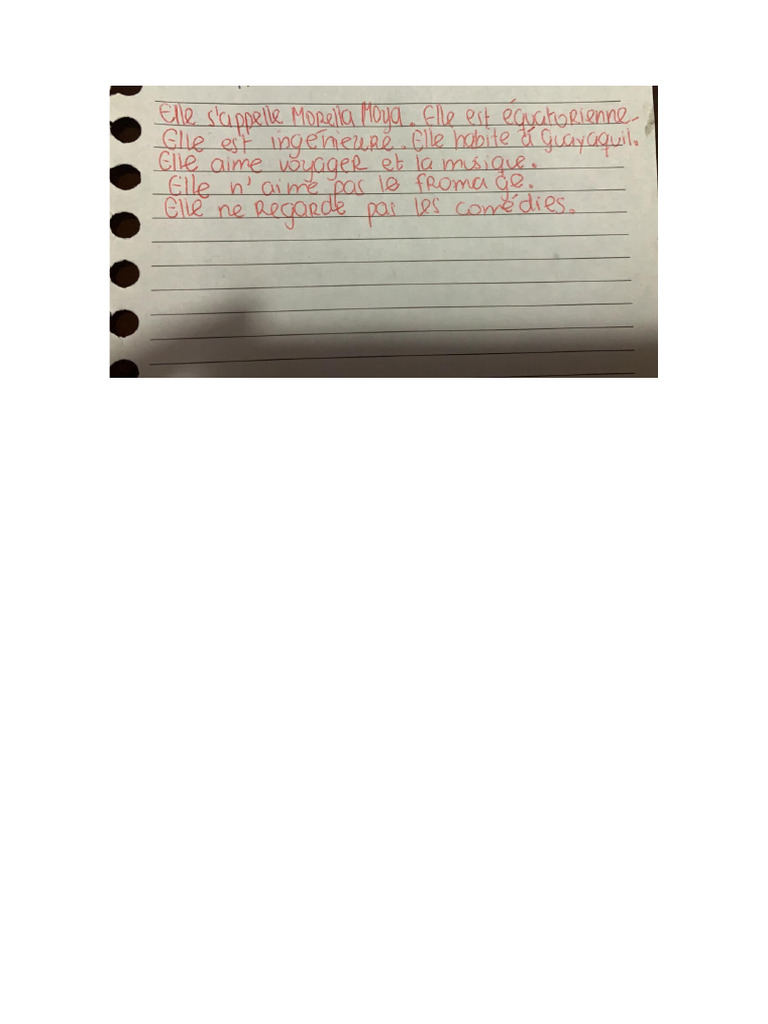 Elle s'appelle Morella Moya. Elle est équatorienne.
Elle est ingénieure. Elle habite à Guayaquil.
Elle aime voyager et la musique.
Elle n'aime pas le fromage.
Elle ne regarde pas les comédies.